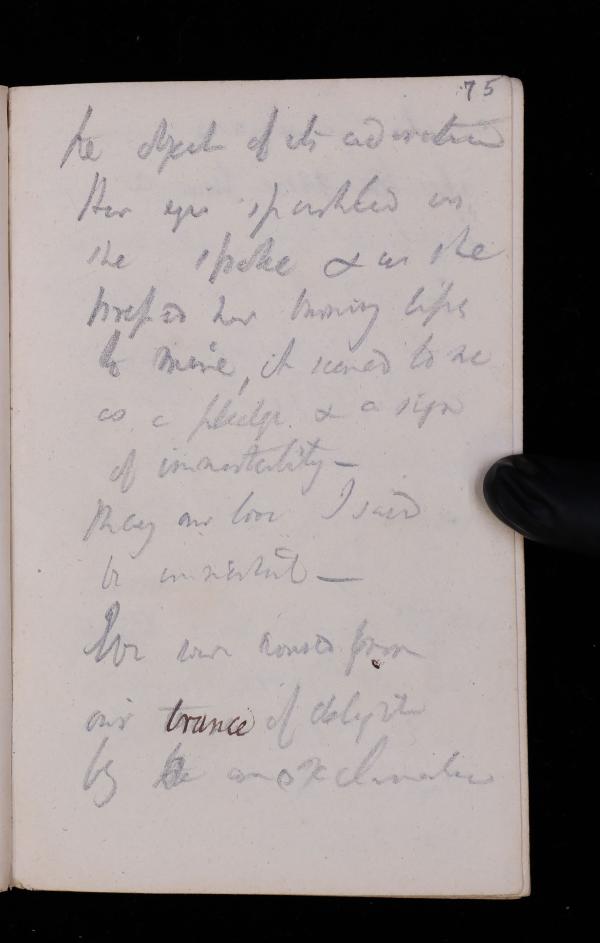 75
the object of its adoration
Her eyes sparkled as
she spoke & as she
pressed her burning lips
to mine, it seemed to me
as a pledge & a sign
of immortality —
May our love I said
be immortal —
We were roused from
our trance of delight
by an exclamation